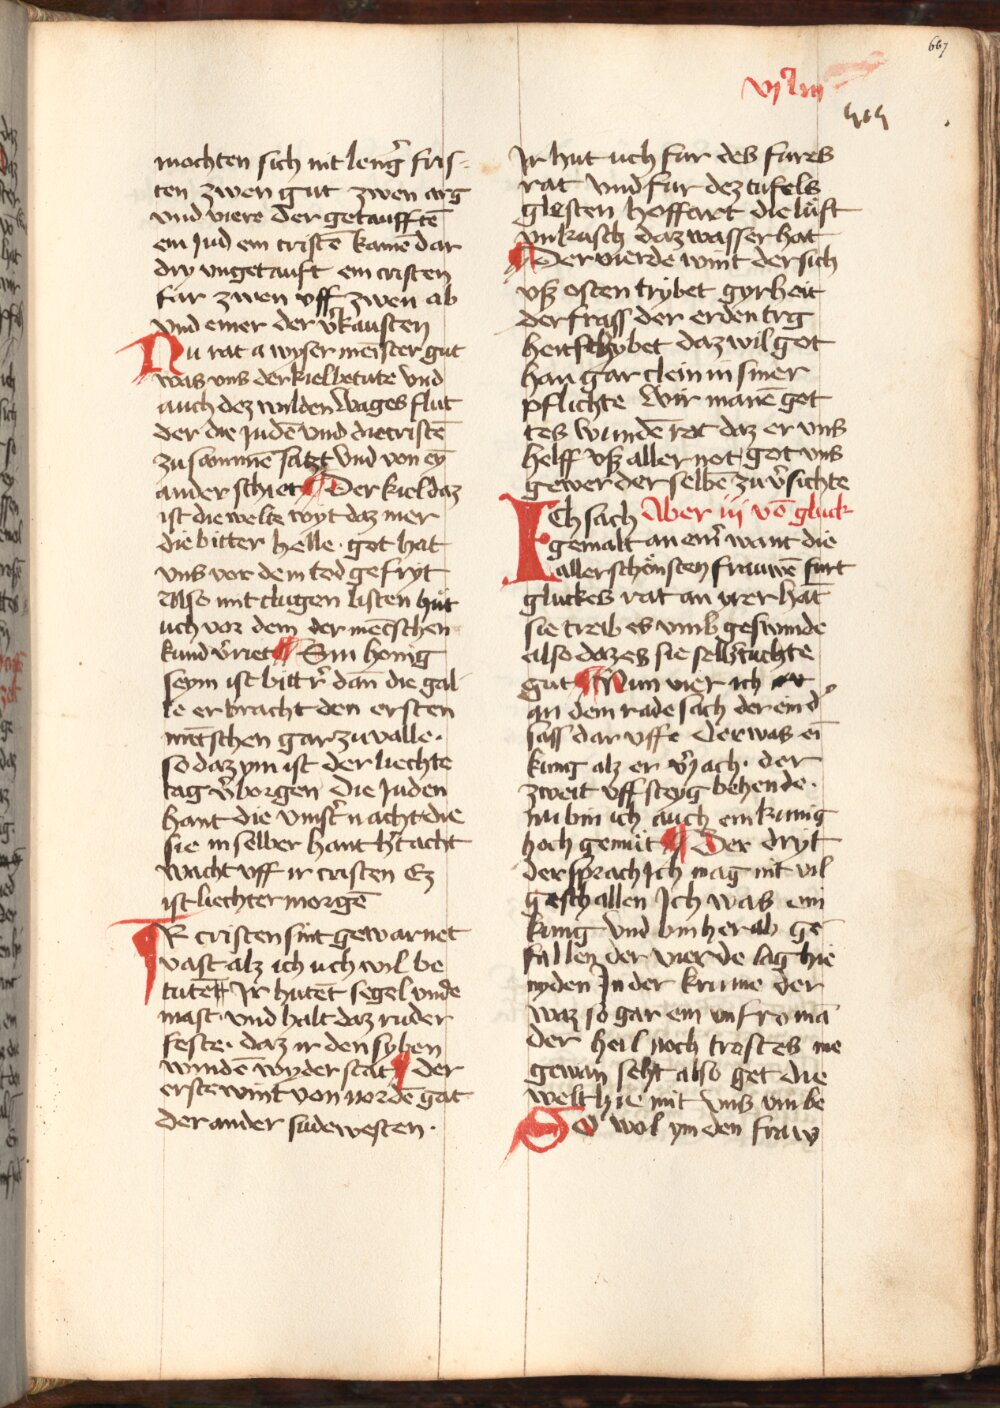 667
vj liij
515
mochten sich nit leng̃ fris-
ten zwen gut zwen arg
vnd viere der getaufftẽ
ein jud ein cristẽ kame dar
dry vngetauft ein cristen
fur zwen vff zwen ab
vnd einer der ṽkausten
Nu rat a wyser meister gut
was vns der kiel betute vnd
auch dez wilden wages flut
der die judẽ vnd die cristẽ
zu sammẽ satzt vnd von eỹ
ander schiet ¶ Der kiel daz
ist die welte wyt daz mer
die bitter helle · got hat
vns vor dem tod gefryt
Also mit clugen listen hüt
uch vor dem der mẽtschen
kund ṽriet ¶ Sin honig
seym ist bittr̃ dañ die gal
le er bracht den ersten
mẽtschen gar zu valle ·
so daz ym ist der liechte
tag ṽborgen Die juden
hant die vinst̃ nacht die
sie in selber hant ertacht
wacht vff ir cristen Ez
ist liechter morgẽ
IR cristen sint gewarnet
vast alz ich uch wil be
tutẽ Ir hutent segel vnde
mast vnd halt daz ruder
feste · daz ir den syben
windẽ wyder stat ¶ der
erste wint von nordẽ gat
der ander sudewesten ·
Ir hut uch fur des fures
rat vnd fur dez tufels
glesten hoffart die lüft
vnkusch daz wasser hat
¶ Der vierde wint der sich
vß osten trybet gyrheit
der frass der erden trg
heit schybet daz wil got
han gar clein in siner
pflichte wir manẽ got
tes wundẽ rot daz er vns
helff vß aller not · got vns
gewer der selbẽ zu ṽsichte
Aber iij võ gluck
ICh sach
gemalt an eim̃ want die
aller schönsten frauwẽ furt
gluckes rat an wer hat
sie treib es vmb geswinde
also daz es sie selbs tuchte
gut ¶ Nun vier ich
an dem rade sach der ein d̕
sass dar vffe der was eĩ
kunig alz er ṽjach · der
zweit vff steyg behende ·
nu bin ich auch ein kunig
hoch gemüt ¶ Der dryt
der sprach Ich mag nit vil
geschallen Ich was ein
kunig vnd bin her ab ge
fallen der vierde lag hie
nyden In der krume der
waz so gar ein vnfro mã
der heil noch trostes nie
gewan seht also get die
welt hie mit vns vmbe
So wol ym den fraw